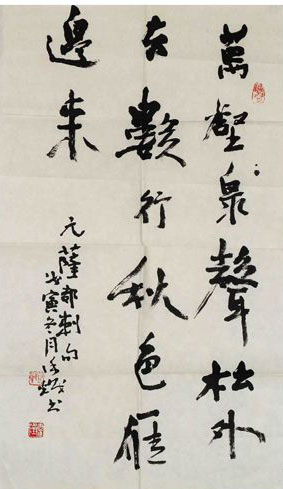 萬壑泉聲松外
去數行秋色雁
邊來
元薩都剌句
戊寅冬月書